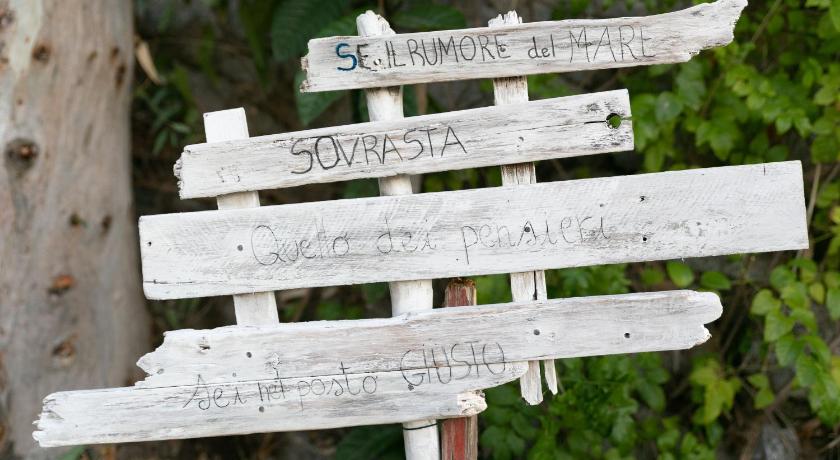 SE IL RUMORE del MARE
SOVRASTA
Quello dei pensieri
sei nel posto GIUSTO